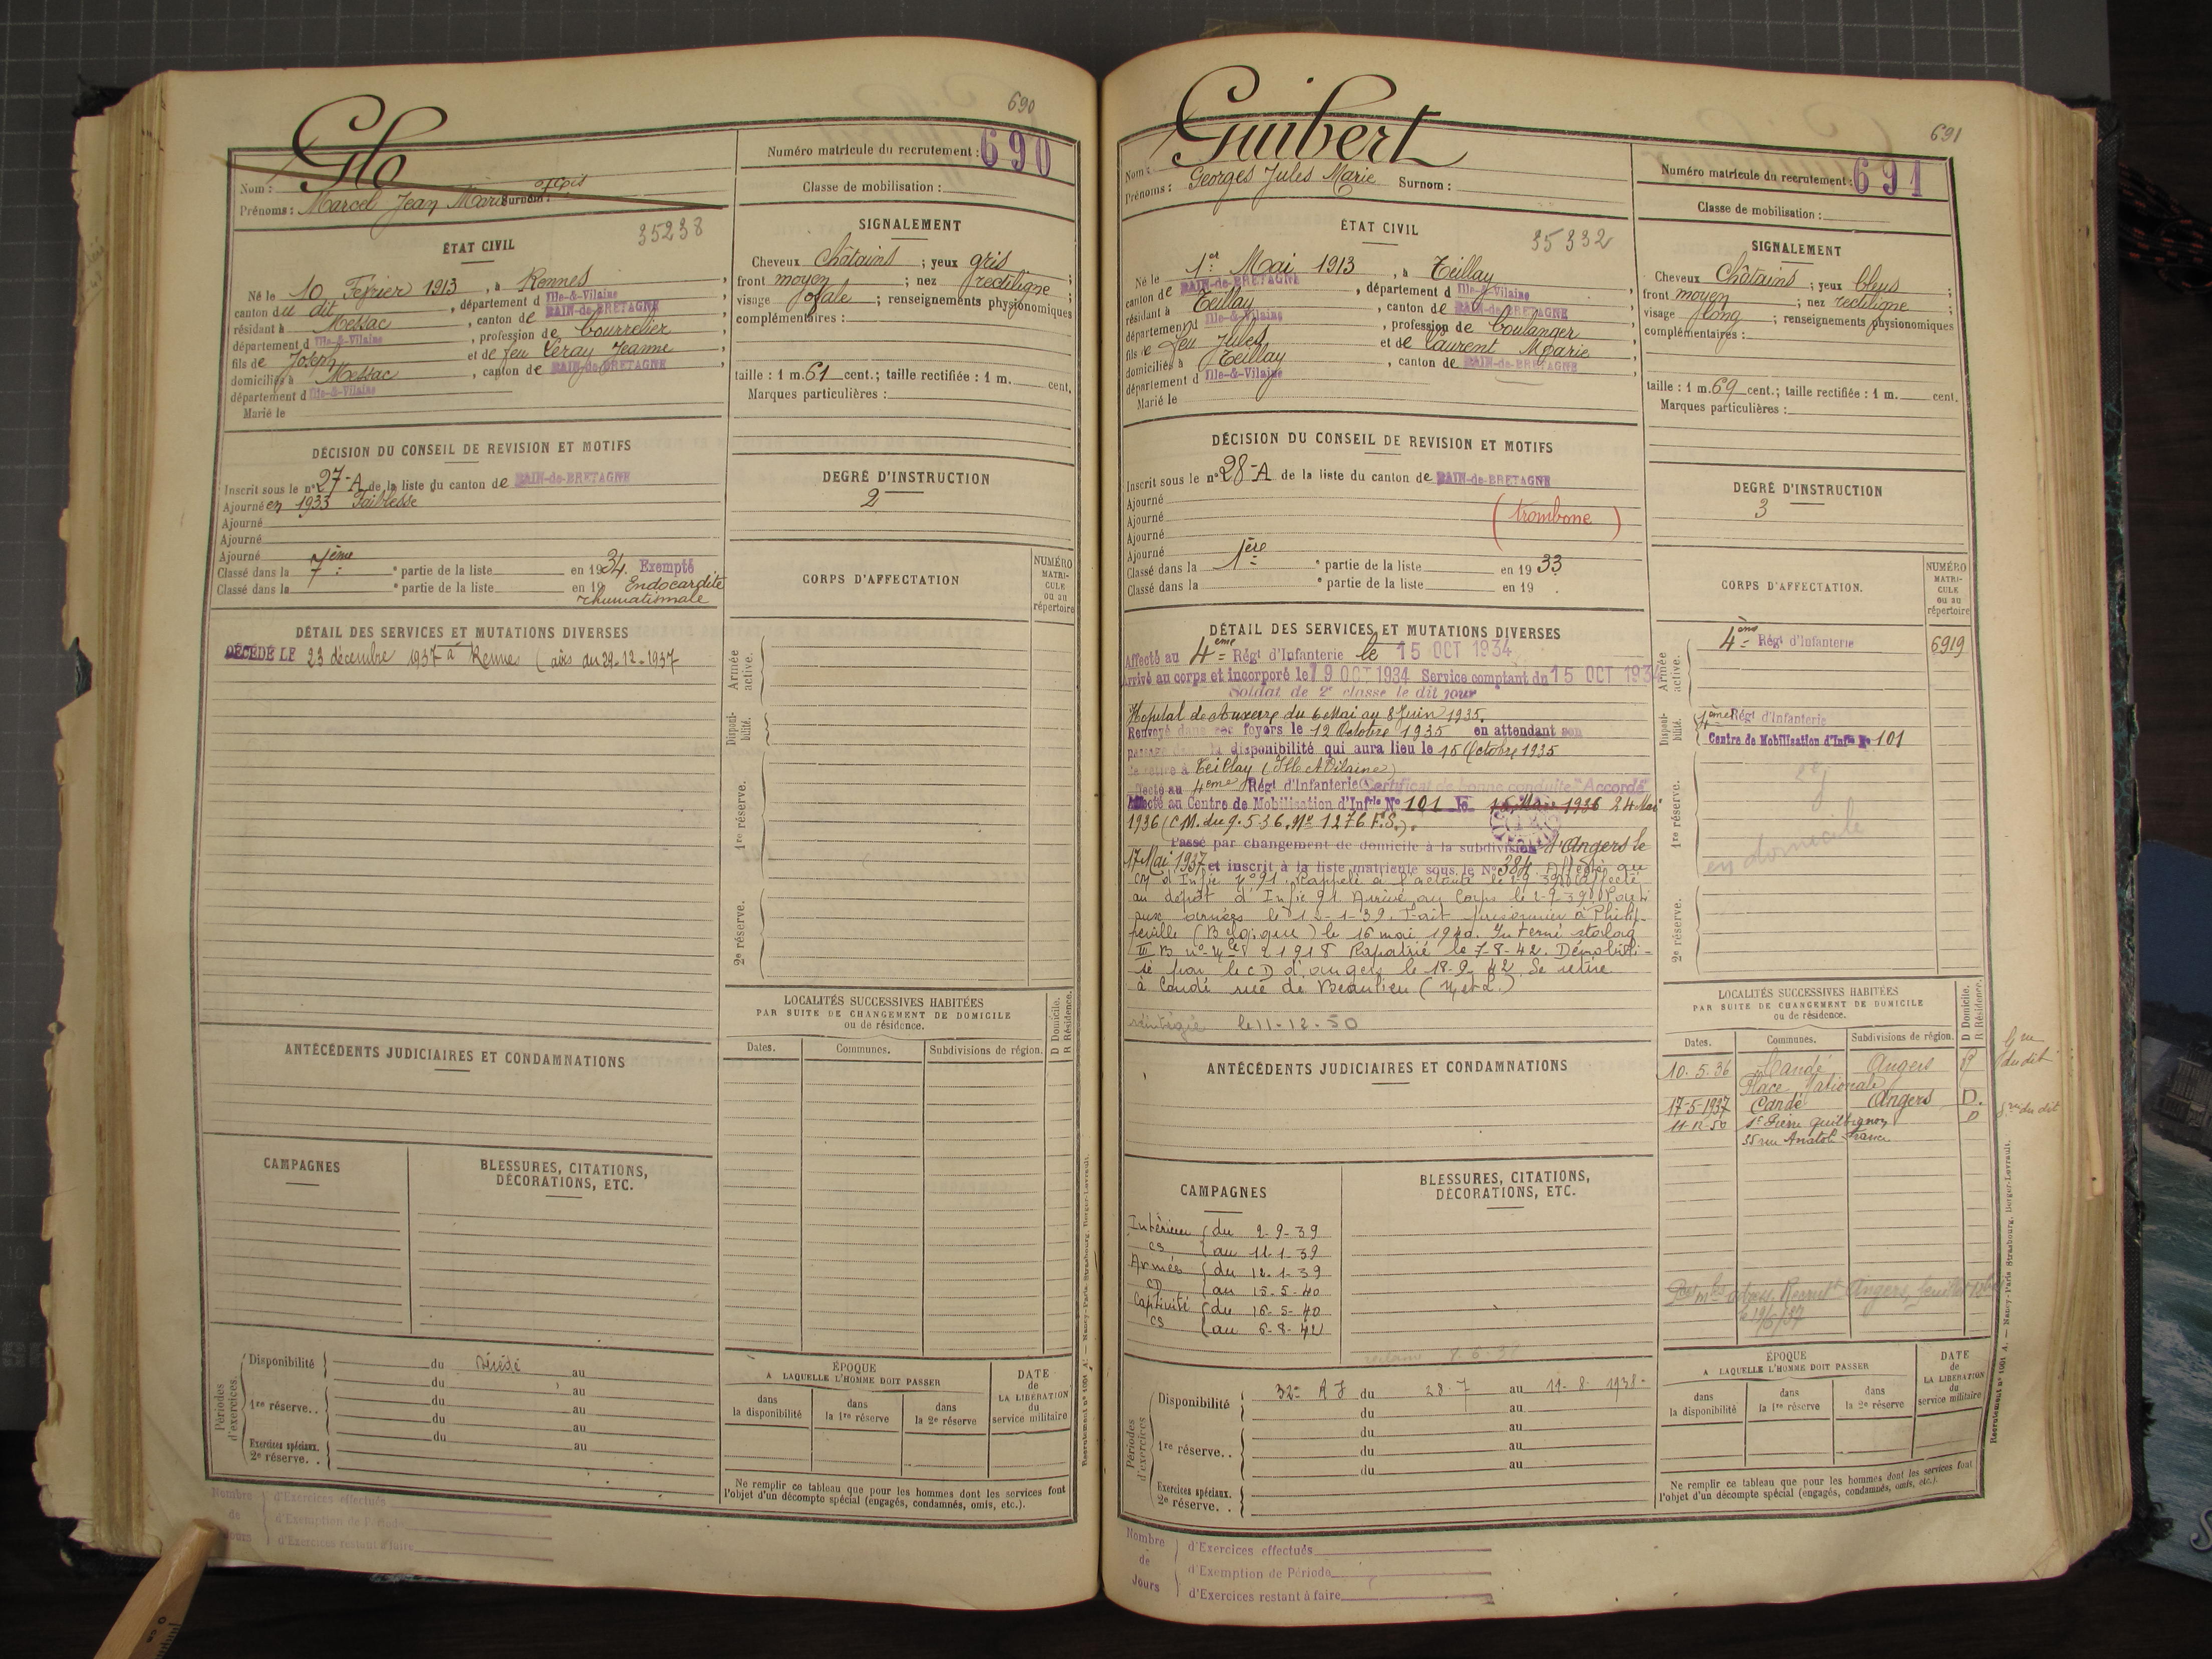 690
Glo
Nom :
Prénoms : Marcel Jean Marie Surnom :
Numéro matricule du recrutement : 690
Classe de mobilisation :
35238
ÉTAT CIVIL
Né le 10 Février 1913, à Rennes,
canton du dit, département d Ille-&-Vilaine
résidant à Messac, canton de BAIN-de-BRETAGNE
département d Ille-&-Vilaine, profession de bourrelier
fils de Joseph et de feu Leray Jeanne
domiciliés à Messac, canton de BAIN-de-BRETAGNE,
département d Ille-&-Vilaine
Marié le
SIGNALEMENT
Cheveux Châtains ; yeux gris ;
front moyen ; nez rectiligne ;
visage ovale ; renseignements physionomiques
complémentaires :
taille : 1 m. 61 cent. ; taille rectifiée : 1 m. cent.
Marques particulières :
DÉCISION DU CONSEIL DE REVISION ET MOTIFS
Inscrit sous le n° 27-A de la liste du canton de BAIN-de-BRETAGNE
Ajourné en 1933 Faiblesse
Ajourné
Ajourné
Ajourné
Classé dans la 7ème partie de la liste en 1934. Exempté
Classé dans la partie de la liste en 19 Endocardite
rhumatismale
DEGRÉ D'INSTRUCTION
2
CORPS D'AFFECTATION
NUMÉRO MATRI-CULE ou au répertoire
DÉTAIL DES SERVICES ET MUTATIONS DIVERSES
DÉCÉDÉ LE 23 décembre 1937 à Rennes (avis du 29-12-1937
Armée active.
Disponi-bilité.
1re réserve.
2e réserve.
LOCALITÉS SUCCESSIVES HABITÉES
PAR SUITE DE CHANGEMENT DE DOMICILE
ou de résidence.
D Domicile.
R Résidence.
Dates. Communes. Subdivisions de région.
ANTÉCÉDENTS JUDICIAIRES ET CONDAMNATIONS
CAMPAGNES
BLESSURES, CITATIONS,
DÉCORATIONS, ETC.
Périodes d'exercices.
Disponibilité du Décédé au
du au
1re réserve. . du au
du au
du au
Exercices spéciaux.
2e réserve. .
ÉPOQUE
A LAQUELLE L'HOMME DOIT PASSER
dans la disponibilité
dans la 1re réserve
dans la 2e réserve
DATE de LA LIBÉRATION du service militaire
Ne remplir ce tableau que pour les hommes dont les services font
l'objet d'un décompte spécial (engagés, condamnés, omis, etc.).
Nombre de Jours
d'Exercices effectués
d'Exemption de Période
d'Exercices restant à faire
691
Guibert
Nom :
Prénoms : Georges Jules Marie Surnom :
Numéro matricule du recrutement : 691
Classe de mobilisation :
35332
ÉTAT CIVIL
Né le 1er Mai 1913, à Teillay
canton de BAIN-de-BRETAGNE, département d Ille-&-Vilaine,
résidant à Teillay, canton de BAIN-de-BRETAGNE,
département d Ille-&-Vilaine, profession de boulanger
fils de feu Jules et de Laurent Marie
domiciliés à Teillay, canton de BAIN-de-BRETAGNE,
département d Ille-&-Vilaine
Marié le
SIGNALEMENT
Cheveux Châtains ; yeux bleus ;
front moyen ; nez rectiligne ;
visage long ; renseignements physionomiques
complémentaires :
taille : 1 m. 69 cent. ; taille rectifiée : 1 m. cent.
Marques particulières :
DÉCISION DU CONSEIL DE REVISION ET MOTIFS
Inscrit sous le n° 28-A de la liste du canton de BAIN-de-BRETAGNE
Ajourné
Ajourné (trombone)
Ajourné
Ajourné
Classé dans la 1ère partie de la liste en 1933
Classé dans la partie de la liste en 19 .
DEGRÉ D'INSTRUCTION
3
CORPS D'AFFECTATION.
NUMÉRO MATRI-CULE ou au répertoire
DÉTAIL DES SERVICES ET MUTATIONS DIVERSES
Affecté au 4ème Régt d'Infanterie le 15 OCT 1934
Arrivé au corps et incorporé le 19 OCT 1934 Service comptant du 15 OCT 1934
Soldat de 2e classe le dit jour
Hopital de Auxerre du 6 Mai au 8 Juin 1935.
Renvoyé dans ses foyers le 12 Octobre 1935 en attendant son
passage dans la disponibilité qui aura lieu le 15 Octobre 1935
Se retire à Teillay (Ille et Vilaine)
Affecté au 4ème Régt d'Infanterie Certificat de bonne conduite "Accordé"
Affecté au Centre de Mobilisation d'Infrie No 101 le 1936 24 Mai
1936 (C.M. du 9.5.36. No 1276 E.S.).
Passé par changement de domicile à la subdivision d'Angers le
17 Mai 1937 et inscrit à la liste matricule sous le No 384. Affecté au
CM d'Infie no 91. Rappelé à l'activité le 2-9-39 Affecté
au dépôt d'Infie 91 Arrivé au Corps le 2-9-39 Parti
aux armées le 12-1-39. Fait prisonnier à Philip-
peville (Belgique) le 16 mai 1940. Interné stalag
III B no Mle 21918 Rapatrié le 7-8-42. Démobili-
sé par le CD d'angers le 18-9-42. Se retire
à Candé rue de Beaulieu (M et L)
réintégré le 11-12-50
Armée active.
4ème Régt d'Infanterie 6919
Disponi-bilité.
4ème Régt d'Infanterie
Centre de Mobilisation d'Infrie No 101
1re réserve.
en domicile
2e réserve.
LOCALITÉS SUCCESSIVES HABITÉES
PAR SUITE DE CHANGEMENT DE DOMICILE
ou de résidence.
D Domicile.
R Résidence.
Dates. Communes. Subdivisions de région.
10.5.36 Candé Angers R
Place Nationale
17-5-1937 Candé Angers D.
11-12-50 St Pierre Quilbignon D
35 rue Anatole France
du dit
du dit
ANTÉCÉDENTS JUDICIAIRES ET CONDAMNATIONS
CAMPAGNES
Intérieur du 2-9-39
CS au 11-1-39
Armées du 12-1-39
CD au 15-5-40
Captivité du 16-5-40
CS au 6-8-42
BLESSURES, CITATIONS,
DÉCORATIONS, ETC.
Périodes d'exercices
Disponibilité 32e du 28.7 au 11-8-1938-
du au
du au
1re réserve. . du au
du au
Exercices spéciaux.
2e réserve. .
ÉPOQUE
A LAQUELLE L'HOMME DOIT PASSER
dans la disponibilité
dans la 1re réserve
dans la 2e réserve
DATE de LA LIBÉRATION du service militaire
Ne remplir ce tableau que pour les hommes dont les services font
l'objet d'un décompte spécial (engagés, condamnés, omis, etc.).
Nombre de Jours
d'Exercices effectués
d'Exemption de Période
d'Exercices restant à faire